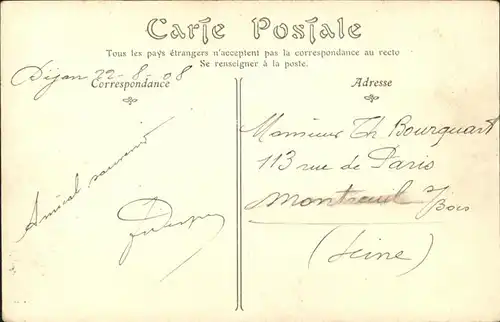 Carte Postale
Tous les pays étrangers n'acceptent pas la correspondance au recto
Se renseigner à la poste.
Dijon 22-8-08
Correspondance
Amical souvenir
Adresse
Monsieur Th Bourquart
113 rue de Paris
Montreuil s/ Bois
(Seine)